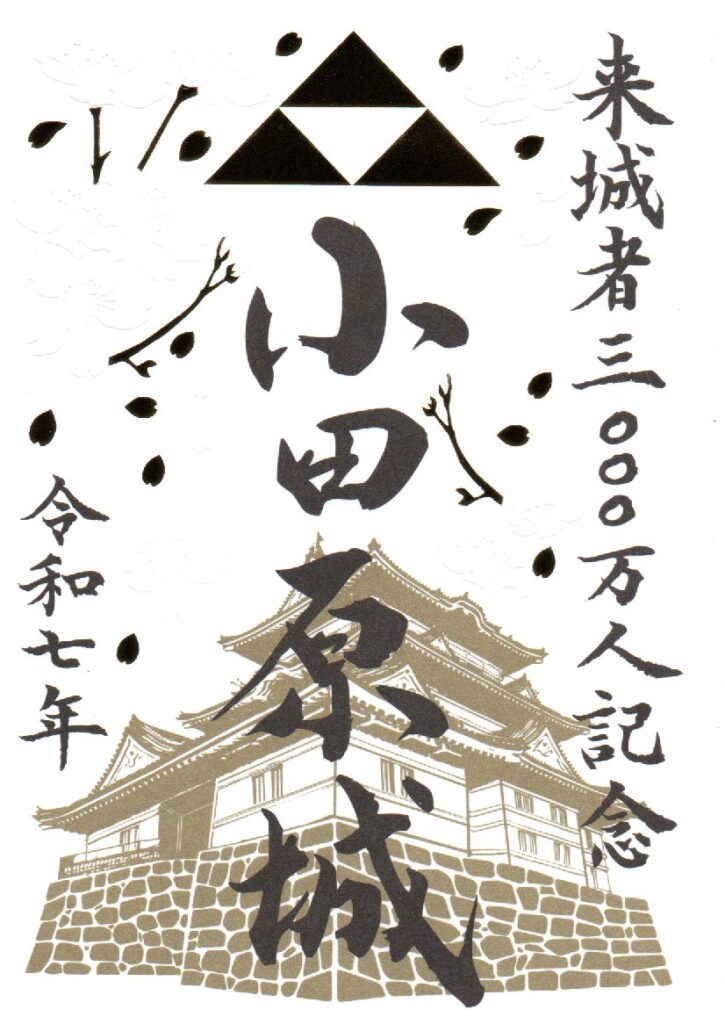 来城者三〇〇〇万人記念
小田原城
令和七年